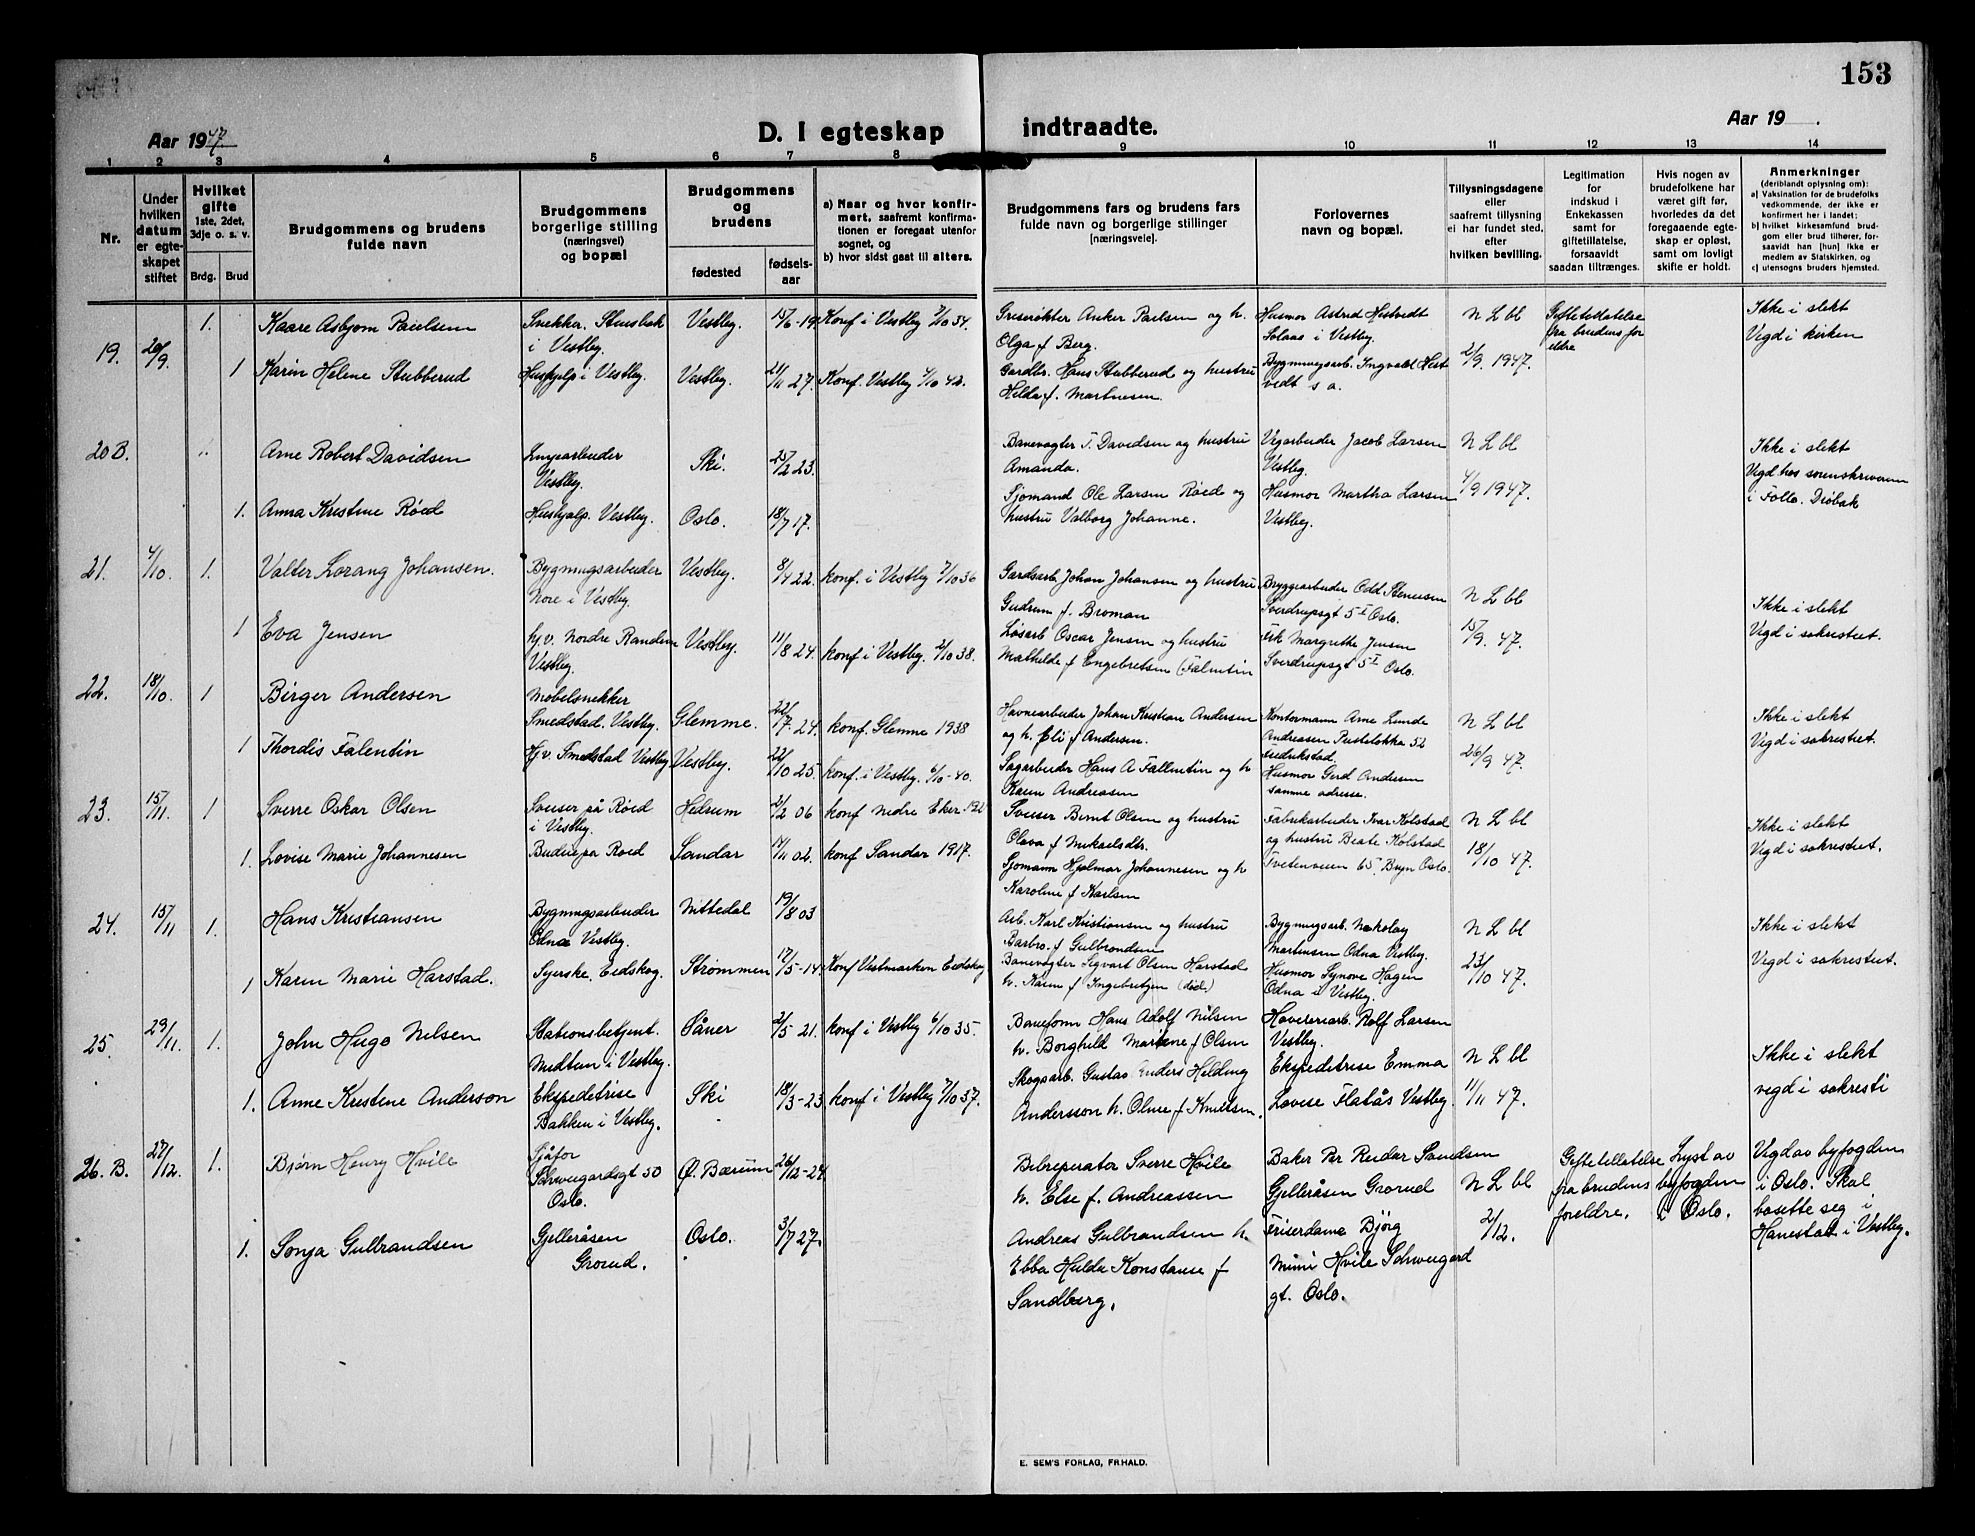 153
Aar 1947.
D. I egteskap indtraadte.
Aar 19 .
1 2 3 4 5 6 7 8 9 10 11 12 13 14
Nr.
Under hvilken datum er egteskapet stiftet
Hvilket gifte 1ste, 2det, 3dje o. s. v.
Brdg. Brud
Brudgommens og brudens fulde navn
Brudgommens borgerlige stilling (næringsvei) og bopæl
Brudgommens og brudens
fødested
fødselsaar
a) Naar og hvor konfirmert, saafremt konfirmationen er foregaat utenfor sognet, og
b) hvor sidst gaat til alters.
Brudgommens fars og brudens fars fulde navn og borgerlige stillinger [næringsveie].
Forlovernes navn og bopæl.
Tillysningsdagene eller saafremt tillysning ei har fundet sted, efter hvilken bevilling.
Legitimation for indskud i Enkekassen samt for giftetillatelse, forsaavidt saadan tiltrænges.
Hvis nogen av brudefolkene har været gift før, hvorledes da det foregaaende egteskap er opløst, samt om lovligt skifte er holdt.
Anmerkninger
(deriblandt oplysning om):
a) Vaksination for de brudefolks vedkommende, der ikke er konfirmert her i landet;
b) hvilket kirkesamfund brudgom eller brud tilhører, forsaavidt han [hun] ikke er medlem av Statskirken, og
c) utensogns bruders hjemsted.
19. 20/9 1. Kaare Asbjørn Paulsen Snekker. Stensbak i Vestby. Vestby. 15/6-19 Konf i Vestby 7/10 34. Griserøkter Anker Paulsen og h. Olga f Berg. Husmor Astrid Hestvedt Solaas i Vestby. N L bl 2/9. 1947. Giftetillatelse fra brudens foreldre Ikke i slekt Vigd i kirken
1 Karin Helene Stubberud Hushjelp i Vestby. Vestby. 21/11 27. Konf. Vestby 4/10 42. Gardbr. Hans Stubberud og hustru Helda f. Martinesen. Bygningsarb. Ingvald Hestvedt s a.
20 B. Arne Robert Davidsen Linjearbeider Vestby. Ski. 25/2 23. Banevogter T. Davidsen og hustru Amanda. Vegarbeider Jacob Larsen Vestby. N L bl 4/9 1947. Ikke i slekt Vigd hos sorenskriveren i Follo. Drøbak
1. Anna Kristine Røed Hushjelp. Vestby. Oslo. 18/7 17. Sjømand Ole Larsen Røed og hustru Valborg Johanne. Husmor Martha Larsen Vestby.
21. 4/10. 1. Valter Lorang Johansen. Bygningsarbeider Nore i Vestby. Vestby. 8/4 22. konf. i Vestby 7/10 36 Gardsarb. Johan Johansen og hustru Gudrun f. Broman Bryggearbeider Odd Stensen Sverdrupsgt 5 I Oslo. N L bl 15/9. 47. Ikke i slekt Vigd i sakrestiet.
1 Eva Jensen hj.v. Nordre Randem Vestby. Vestby. 11/8 24. konf i Vestby. 2/10 38. Løsarb Oscar Jensen og hustru Mathilde f Engebretsen (Falentin Frk Margrethe Jensen Sverdrupsgt 5 I Oslo.
22. 18/10. 1 Birger Andersen Møbelsnekker Smedstad. Vestby. Glemme. 22/7. 24. konf. Glemme 1938 Havnearbeider Johan Kristian Andersen og h. Eli f Andersen. Kontormann Arne Lunde Andreasen Pusteløkka 52 Fredrikstad. N L bl 26/9 47. Ikke i slekt Vigd i sakrestiet.
1 Thordis Falentin Hj.v. Smedstad Vestby Vestby. 22/10 25. konf. i Vestby. 6/10-40. Sagarbeider Hans A Fallentin og h Karen Andreasen Husmor Gerd Andersen samme adresse.
23. 15/11. 1 Sverre Oskar Olsen Sveiser på Røed i Vestby. 2/2 06 konf nedre Eker 192 Sveiser Bernt Olsen og hustru Olava f Mikaelsdtr. Fabrikarbeider Ivar Kolstad og hustru Beate Kolstad Tvetenveien 65. Bryn Oslo. N L bl 18/10 47. Ikke i slekt Vigd i sakrestiet.
1. Lovise Marie Johannesen Budeie på Røed Sandar 14/11 02. konf Sandar 1917. Sjømann Hjalmar Johannesen og h Karoline f Karlsen
24. 15/11 1. Hans Kristiansen Bygningsarbeider Odna Vestby. Nittedal 19/8 03 Arb. Karl Kristiansen og hustru Barbro. f Gulbrandsen Bygningsarb. Nikolay Martinsen Odna Vestby. N L bl 23/10 47. Ikke i slekt Vigd i sakrestiet.
1 Karen Marie Harstad. Syerske. Eidskog. Strømmen 12/5-14 Konf Vestmarken Eidskog Banevogter Sigvart Olsen Harstad h. Karen f Ingebretsen (død.) Husmor Synøve Hagen Odna i Vestby.
25. 29/11. 1. John Hugo Nilsen Stationsbetjent. Midtun i Vestby. Såner 2/5 21. konf i Vestby 6/10 35. Baneform Hans Adolf Nilsen h. Borghild Marine f Olsen Havereriarb. Rolf Larsen Vestby. N L bl 11/11 47. Ikke i slekt vegd i sakresti
1. Anne Kristine Anderson Ekspeditrise Bakken i Vestby. Ski 18/3-23 konf i Vestby 7/10 37. Skogsarb. Gustav Enders Helding Andersson h. Oline f Knutsen. Ekspeditrise Emma Lovise Flatås Vestby.
26. B. 27/12. 1. Bjørn Henry Hvile Sjåfør Schweigardsgt 50 Oslo. Ø. Bærum 26/12-24 Bilreperatør Sverre Hvile h. Else f. Andreassen Baker Per Reidar Sandsen Gjelleråsen Grorud N L bl 2/12. Giftetillatelse fra brudens foreldre. Lyst av byfogden i Oslo. Vigd av byfogden i Oslo. Skal bosette seg i Hanestad i Vestby.
1. Sonja Gulbrandsen Gjelleråsen Grorud. Oslo. 3/7 27. Andreas Gulbrandsen h. Ebba Hulda Konstanse f Sandberg. Friserdame Bjørg Mimi Hvile Schweigard gt. Oslo.
E. SEM'S FORLAG, FR.HALD.